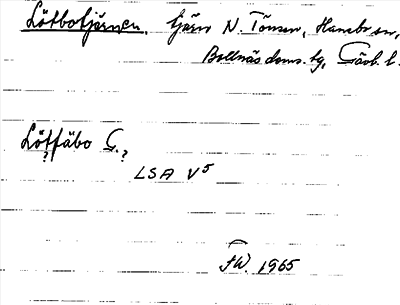 Lötbotjärnen. Tjärn N. Tönsen, Hanebo sn,
Bollnäs doms. tg, Gävl. l.
Lötfäbo G.?
?
LSA V5
FW. 1965